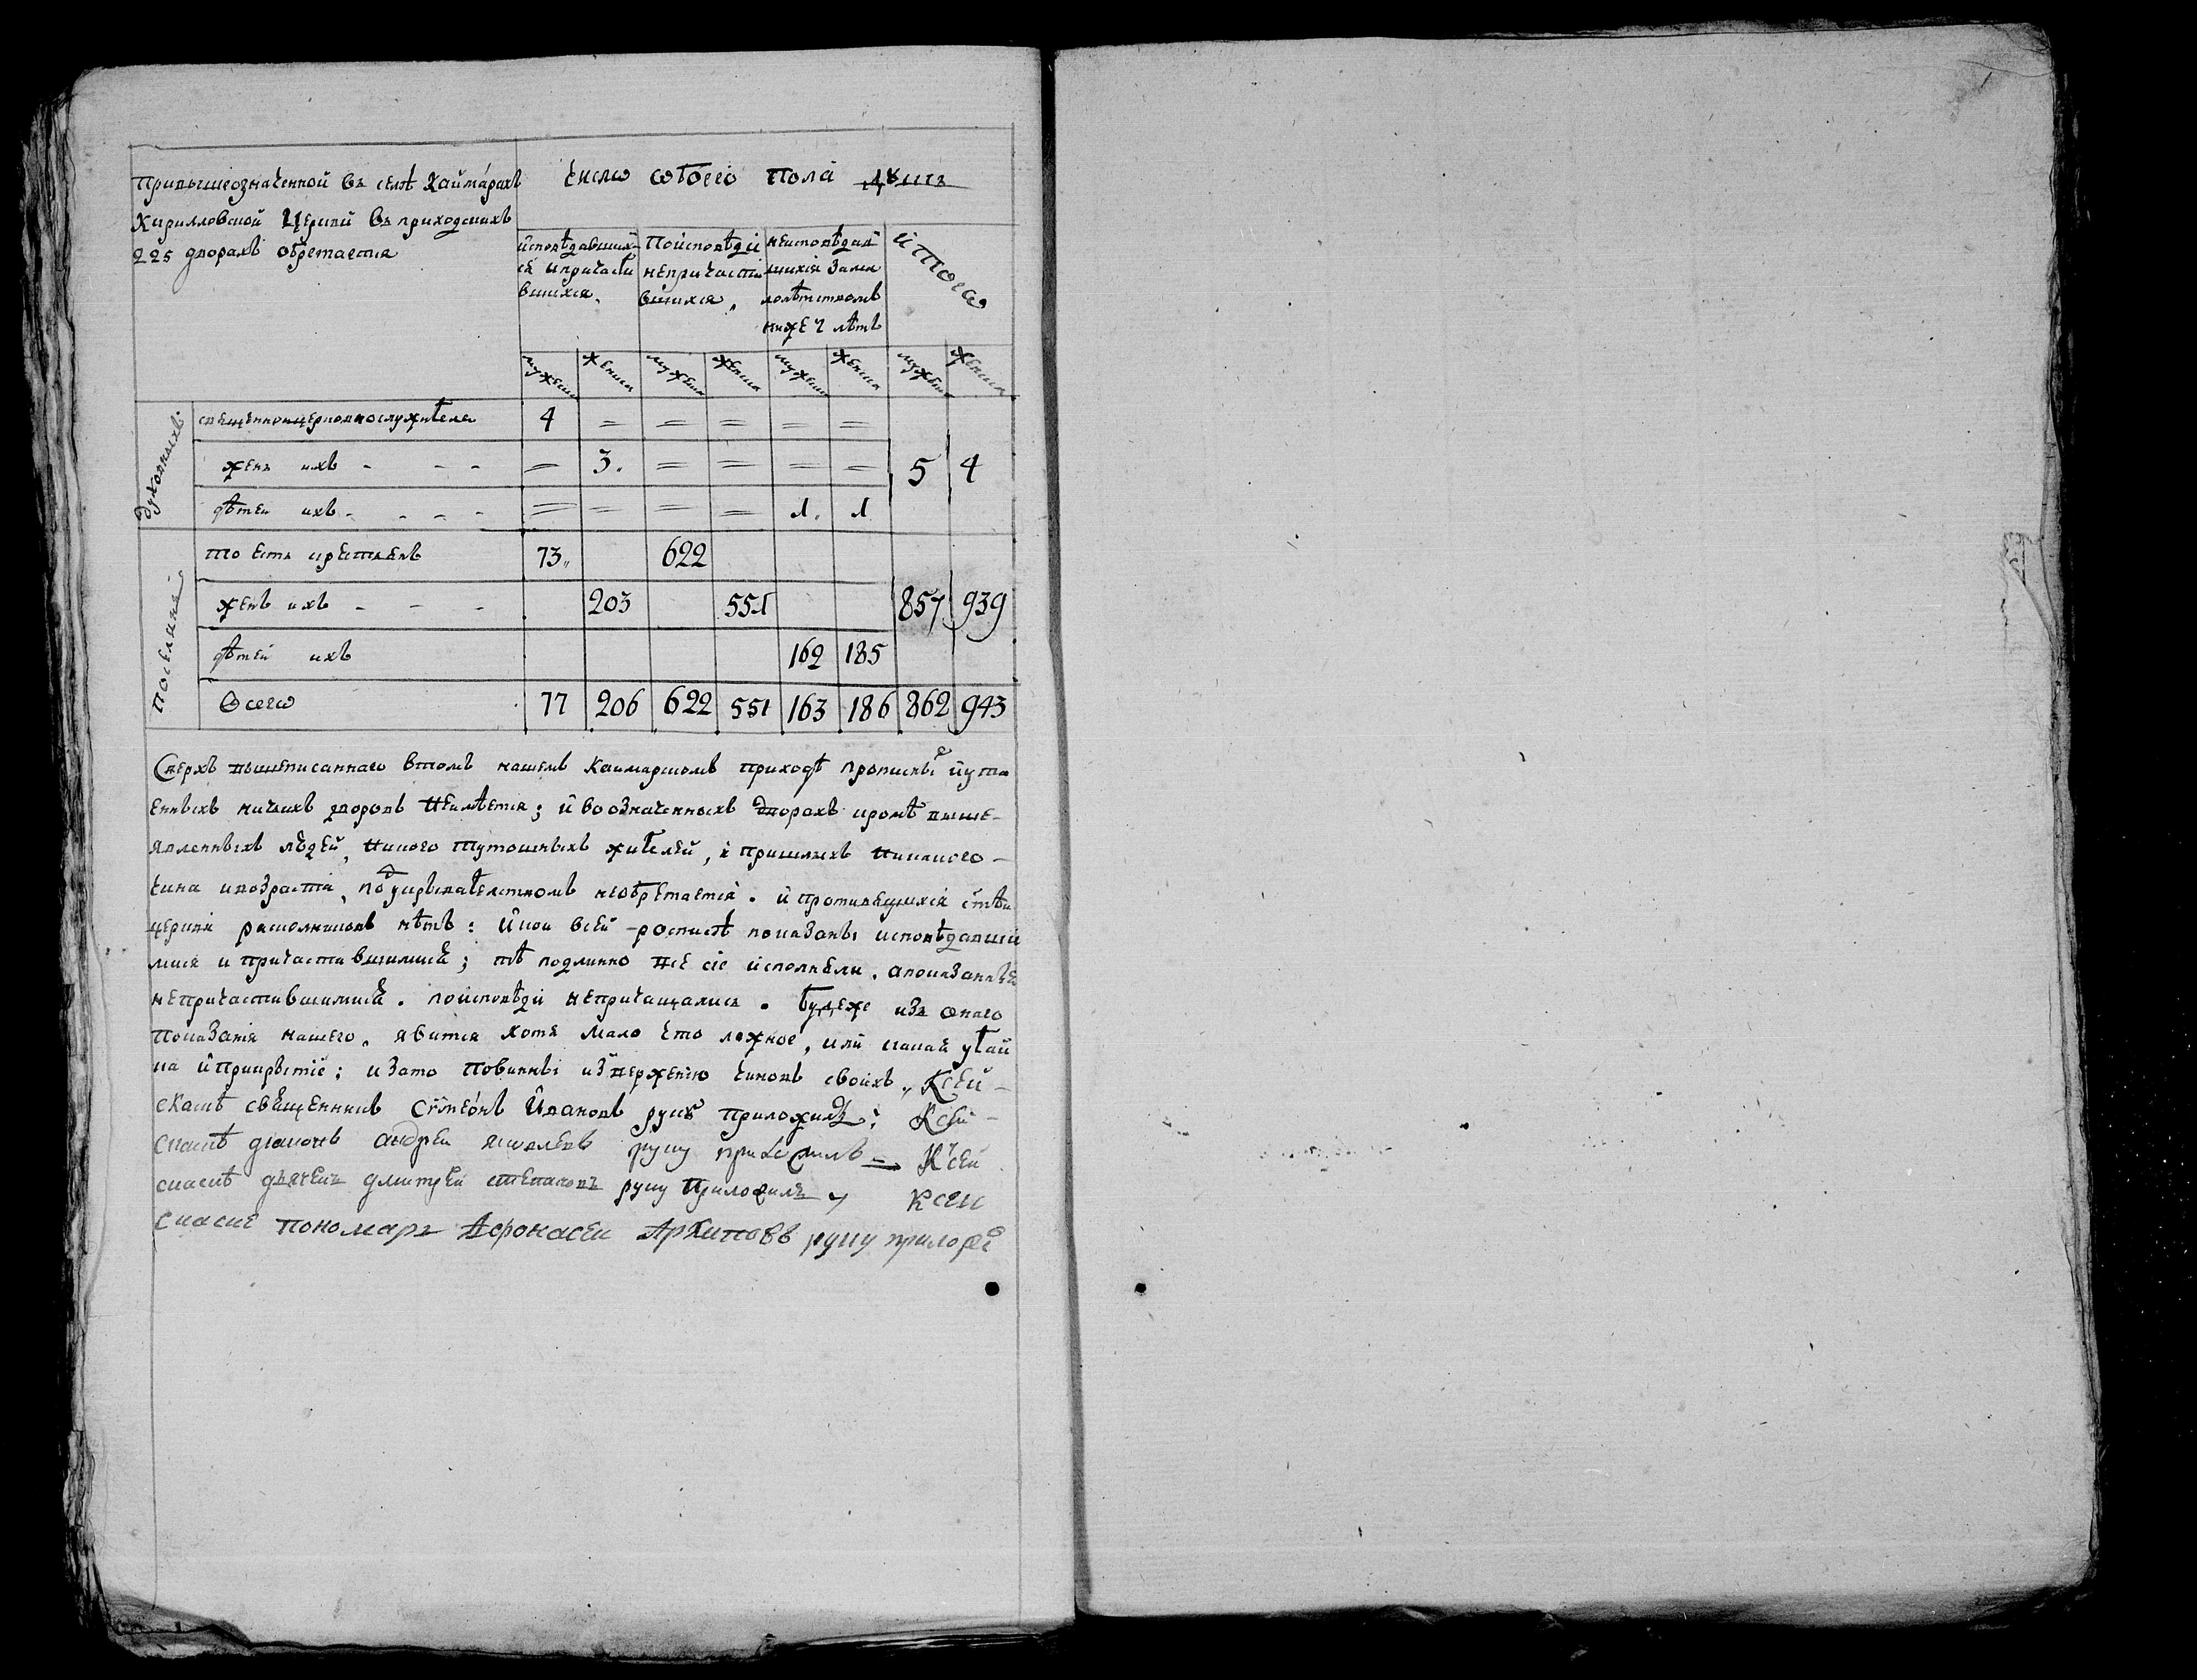 Привышеозначенной въ селѣ Каймарахъ
Кирилловской Церкви въ приходскихъ
225 дворахъ обретается
число обоего пола душъ
исповѣдавших-
ся и причасти
вшихся.
По исповѣди
непричасти
вшихся
неисповѣдав
шихся за мало
лѣтством
ниже 7 лѣтъ
итого
мужеска женска мужеска женска мужеска женска мужеска женска
духовныхъ
священноцерковнослужителей 4 = = = = =
женъ ихъ - - - = 3. = = = = 5 4
дѣтей ихъ - - - - = = = = 1. 1
поселяня
то есть крестьянъ 73 622
женъ ихъ - - - 203 551 857 939
дѣтей ихъ 162 185
Всего 77 206 622 551 163 186 862 943
Сверхъ вышеписаннаго втомъ нашемъ Каймарскомъ приходѣ прописныхъ и ута
енныхъ ничьихъ дворовъ неимѣется; и во означенныхъ дворахъ кромѣ выше-
явленныхъ людей, никого тутошныхъ жителей, и пришлыхъ никакого-
чина и возраста, под укрывателствомъ необретается. и противящихся стѣй
церкви расколниковъ нѣтъ: и кои в сей росписѣ показаны исповѣдавши
мися и причастившимися; тѣ подлинно все сие исполнели. а показанные
непричастившимися. по исповѣди непричащались. Будеже изъ онаго
показания нашего. явится хотя мало что ложное, или какая утай
ка и прикрытие; и зато повинны извержению чиновъ своихъ. К сей-
скаскѣ священникъ Симеонъ Ивановъ руку приложилъ; К сей-
скаскѣ диаконъ андрей яковлевъ руку приложилъ - К сей
скаскѣ дьячекъ дмитрей степановъ руку приложилъ, К сеи
скаске пономарь Афонасеи Архиповъ руку приложи